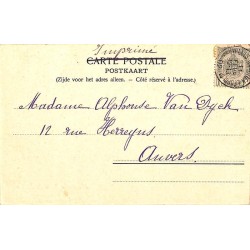 Imprimé
CARTE POSTALE
POSTKAART
(Zijde voor het adres alleen. - Côté réservé à l'adresse.)
Madame Alphonse Van Dyck
12 rue Herreyns.
Anvers.